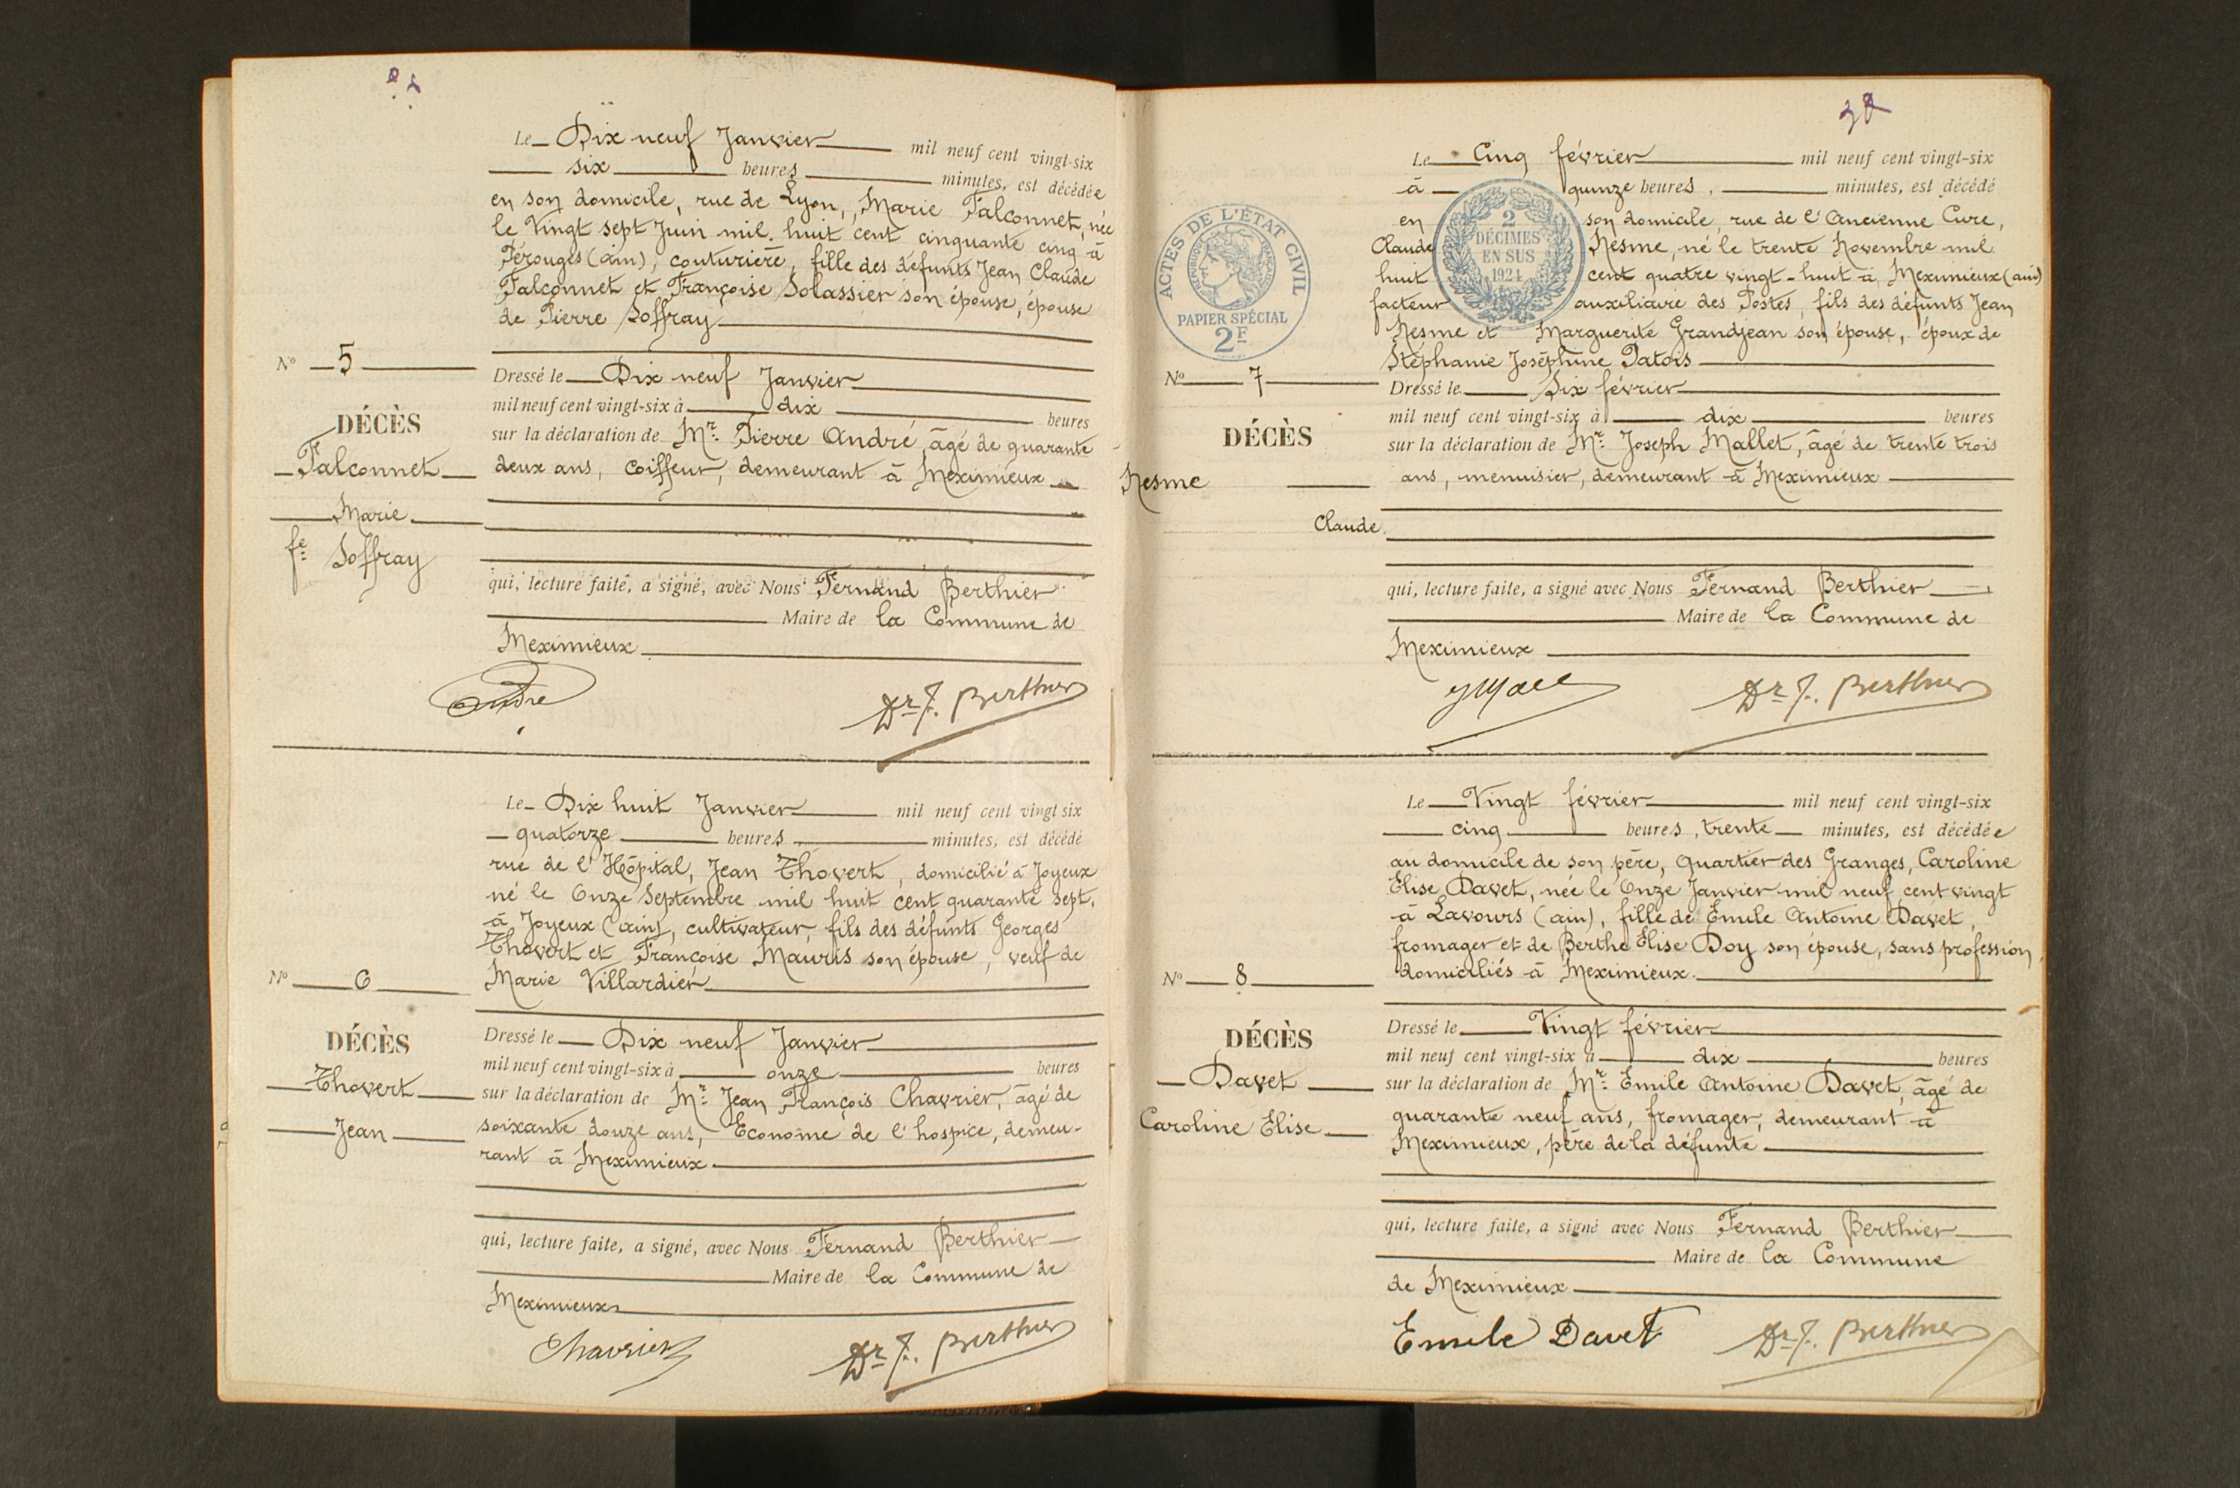 Le Dix neuf Janvier mil neuf cent vingt-six
six heures minutes, est décédée
en son domicile, rue de Lyon, Marie Falconnet, née
le Vingt sept Juin mil huit cent cinquante cinq à
Pérouges (ain), couturière, fille des défunts Jean Claude
Falconnet et Françoise Solassier son épouse, épouse
de Pierre Soffray
N° 5
DÉCÈS
Falconnet
Marie
fe Soffray
Dressé le Dix neuf Janvier
mil neuf cent vingt-six à dix heures
sur la déclaration de Mr. Pierre André, âgé de quarante
deux ans, coiffeur, demeurant à Meximieux
qui, lecture faite, a signé, avec Nous Fernand Berthier
Maire de la Commune de
Meximieux
André
Dr F. Berthier
Le Dix huit Janvier mil neuf cent vingt six
quatorze heures minutes, est décédé
rue de l'Hôpital, Jean Thovert, domicilié à Joyeux
né le Onze Septembre mil huit cent quarante sept,
à Joyeux (ain), cultivateur, fils des défunts Georges
Thovert et Françoise Mauris son épouse, veuf de
Marie Villardier
N° 6
DÉCÈS
Thovert
Jean
Dressé le Dix neuf Janvier
mil neuf cent vingt-six à onze heures
sur la déclaration de Mr. Jean François Chavrier, âgé de
soixante douze ans, Econome de l'hospice, demeu-
rant à Meximieux
qui, lecture faite, a signé, avec Nous Fernand Berthier
Maire de la Commune de
Meximieux
Chavrier
Dr F. Berthier
Le Cinq février mil neuf cent vingt-six
à quinze heures, minutes, est décédé
en son domicile, rue de l'Ancienne Cure,
Claude Nesme, né le trente Novembre mil
huit cent quatre vingt-huit à Meximieux (ain)
facteur auxiliaire des Postes, fils des défunts Jean
Nesme et Marguerite Grandjean son épouse, époux de
Stéphanie Joséphine Patois
ACTES DE L'ÉTAT CIVIL
RÉPUBLIQUE FRANÇAISE
PAPIER SPÉCIAL
2F
2
DÉCIMES
EN SUS
1924
N° 7
DÉCÈS
Nesme
Claude
Dressé le Six février
mil neuf cent vingt-six à dix heures
sur la déclaration de Mr. Joseph Mallet, âgé de trente trois
ans, menuisier, demeurant à Meximieux
qui, lecture faite, a signé avec Nous Fernand Berthier
Maire de la Commune de
Meximieux
Dr F. Berthier
Le Vingt février mil neuf cent vingt-six
cinq heures, trente minutes, est décédée
au domicile de son père, quartier des Granges, Caroline
Elise Davet, née le Onze Janvier mil neuf cent vingt
à Lavours (ain), fille de Emile Antoine Davet,
fromager et de Berthe Elise Doy son épouse, sans profession,
domiciliés à Meximieux.
N° 8
DÉCÈS
Davet
Caroline Elise
Dressé le Vingt février
mil neuf cent vingt-six à dix heures
sur la déclaration de Mr. Emile Antoine Davet, âgé de
quarante neuf ans, fromager, demeurant à
Meximieux, père de la défunte
qui, lecture faite, a signé avec Nous Fernand Berthier
Maire de la Commune
de Meximieux
Emile Davet
Dr F. Berthier